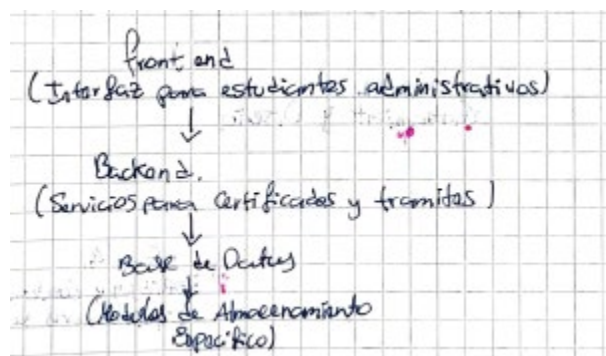 Front end
(Interfaz para estudiantes administrativos)
↓
Backend.
(Servicios para Certificados y tramites)
↓
Base de Datos
↓
(Modulos de Almacenamiento
Especifico)